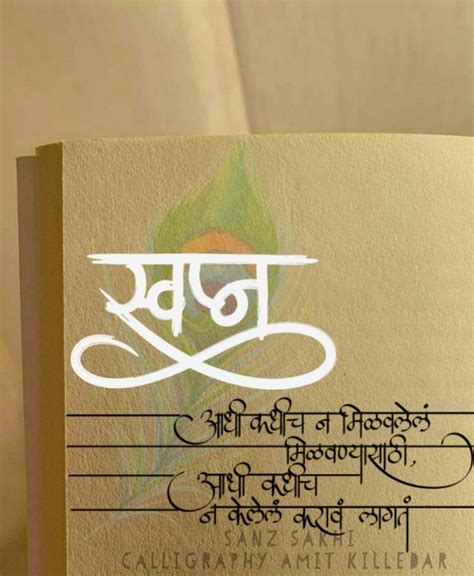 स्वप्न
आधी कधीच न मिळवलेलं
मिळवण्यासाठी,
आधी कधीच
न केलेलं करावं लागतं
SANZ SAKHI
CALLIGRAPHY AMIT KILLEDAR